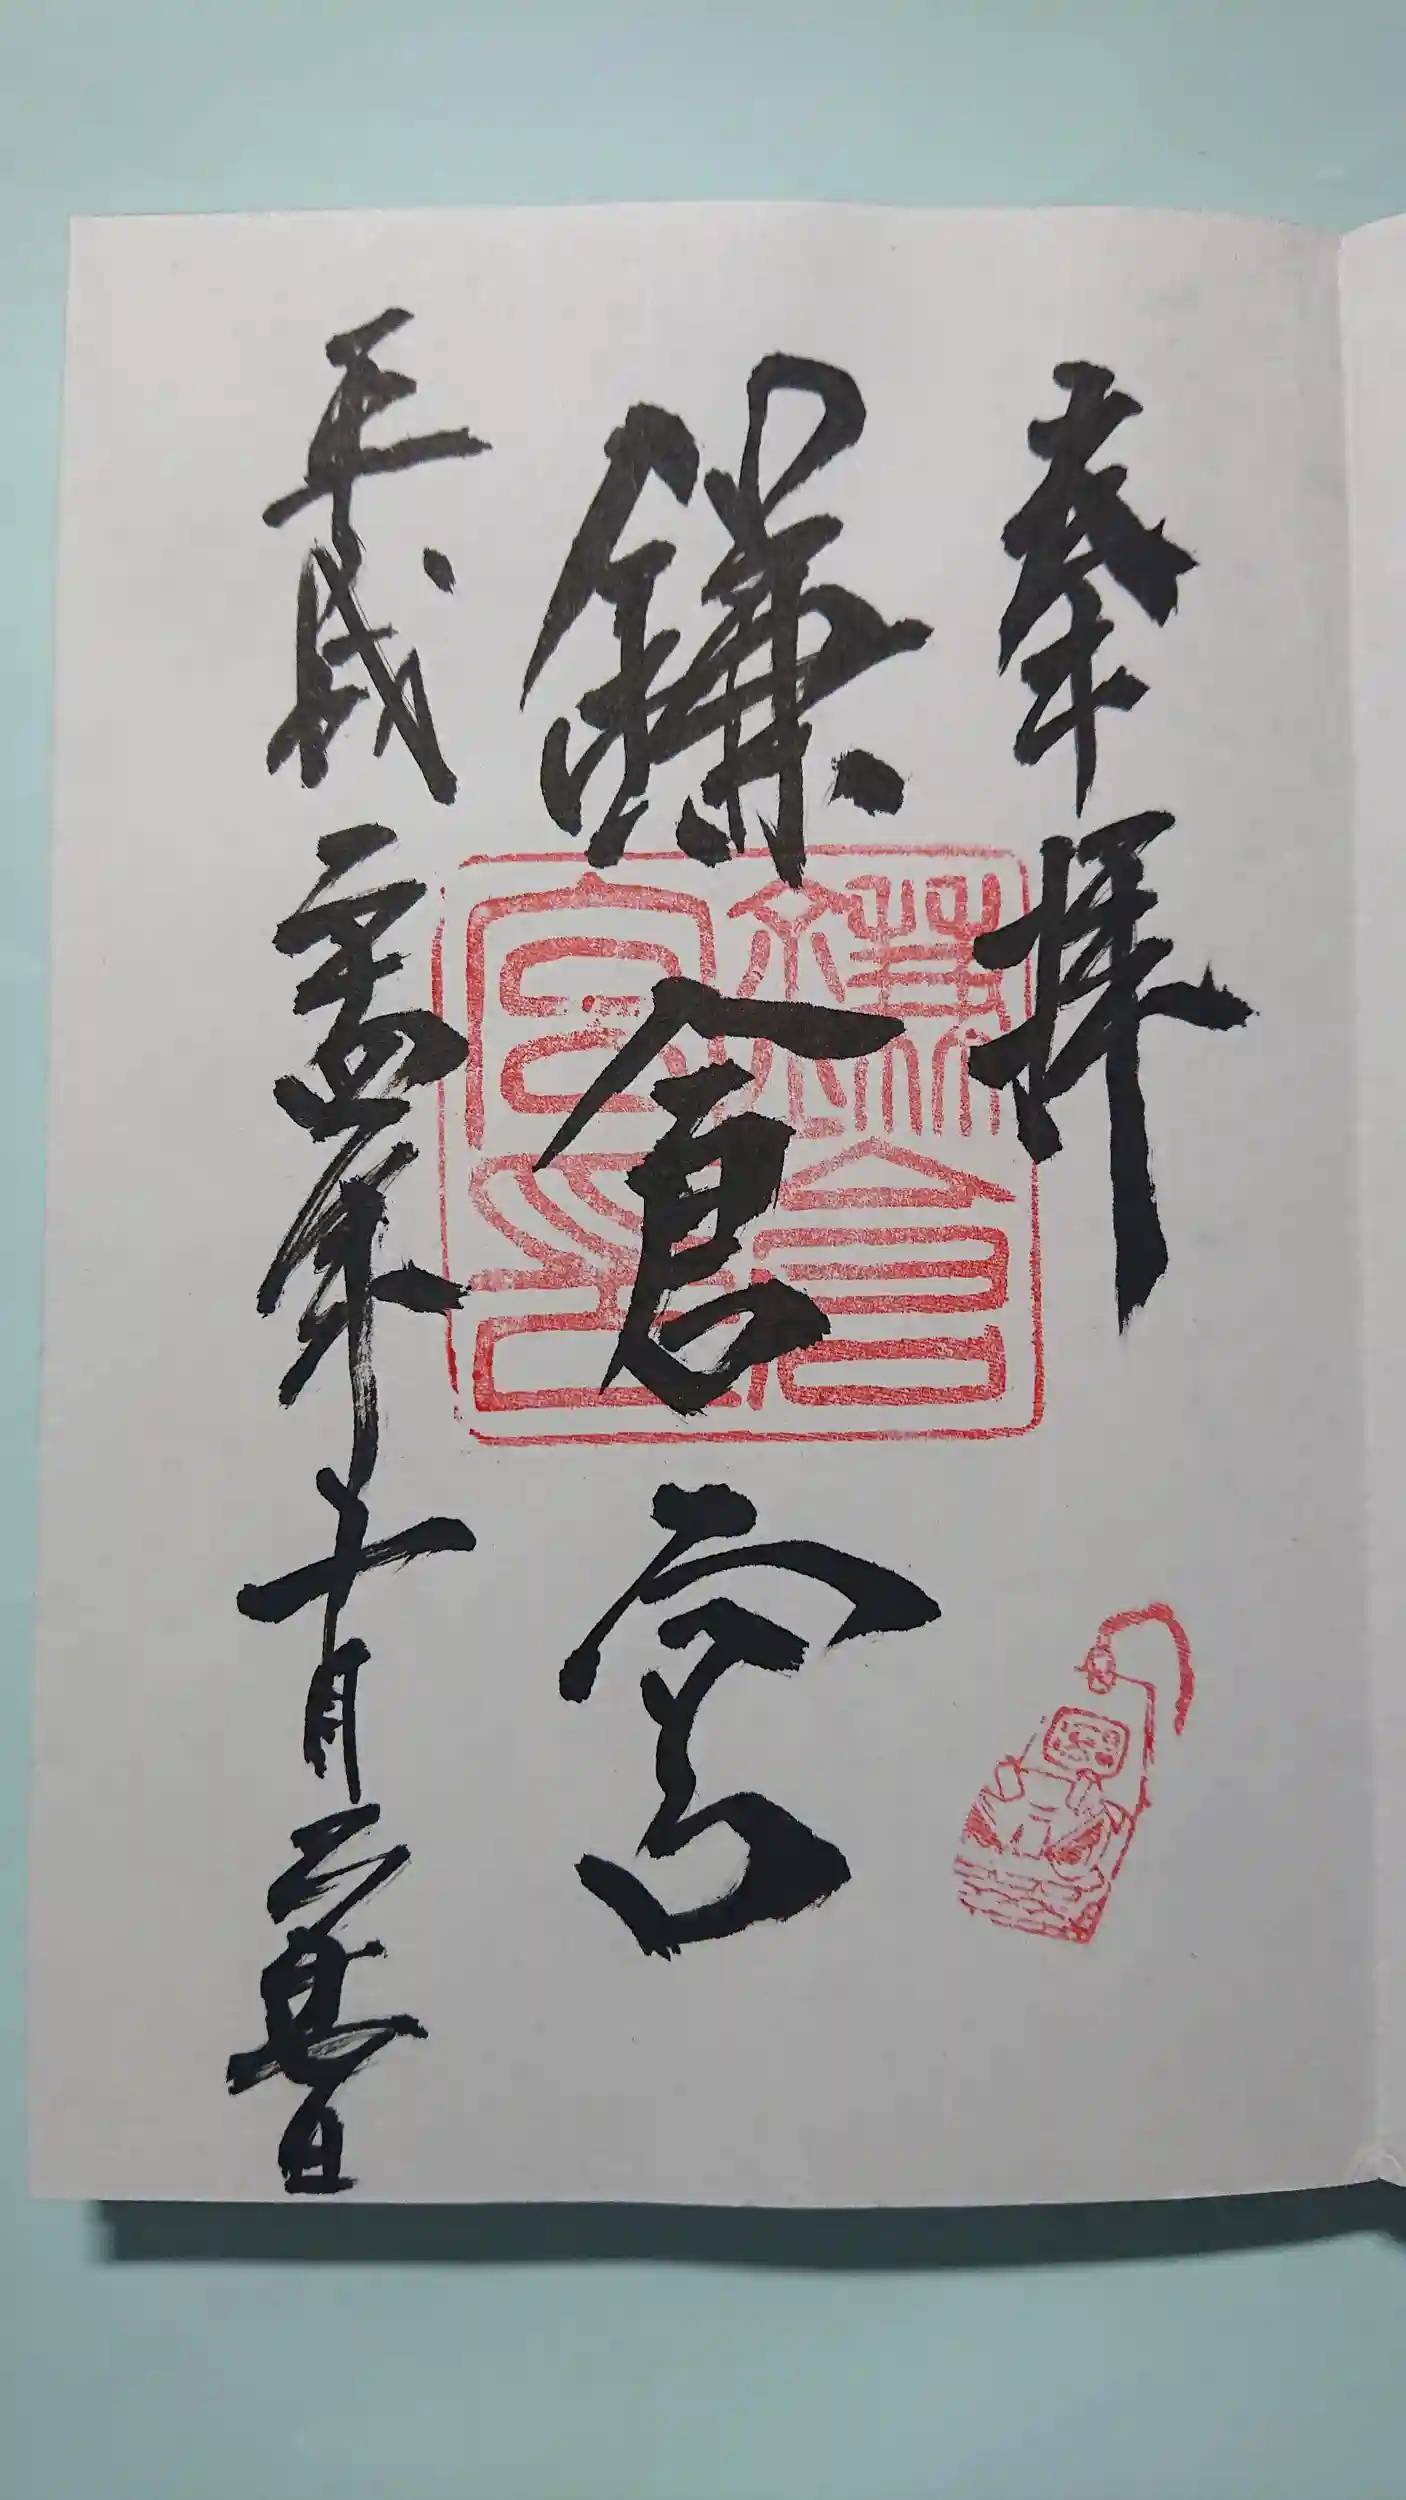 奉拝
鎌倉宮
鎌倉宮印
平成二十四年十月日